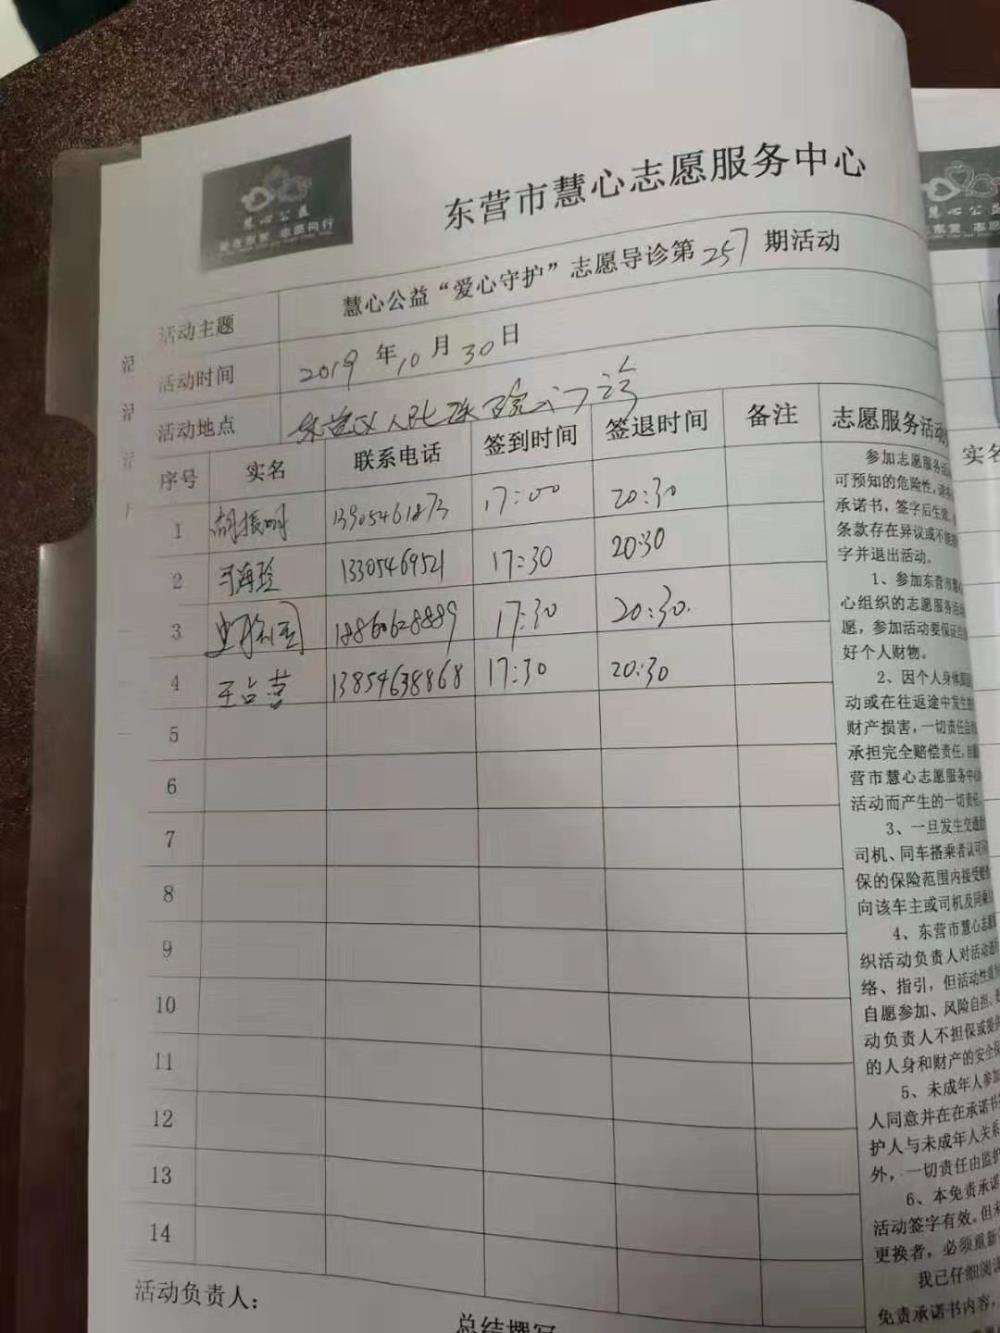 慧心公益
爱在东营 志愿同行
东营市慧心志愿服务中心
活动主题 慧心公益“爱心守护”志愿导诊第257期活动
活动时间 2019年10月30日
活动地点 东营区人民医院门诊
序号 实名 联系电话 签到时间 签退时间 备注
1 胡振明 13905461873 17:00 20:30
2 海玲 13305469521 17:30 20:30
3 18860628889 17:30 20:30.
4 王占营 13854638868 17:30 20:30
5
6
7
8
9
10
11
12
13
14
活动负责人：
总结撰写
志愿服务活动
参加志愿服务活
可预知的危险性，请
承诺书，签字后生效。
条款存在异议或不能
字并退出活动。
1、参加东营市慧
心组织的志愿服务活
愿，参加活动要保证
好个人财物。
2、因个人身体
动或在往返途中发生
财产损害，一切责任自
承担完全赔偿责任，
营市慧心志愿服务中心
活动而产生的一切责任。
3、一旦发生交通
司机、同车搭乘者认可
保的保险范围内接受赔
向该车主或司机及同乘
4、东营市慧心志愿
织活动负责人对活动进
络、指引，但活动性质
自愿参加、风险自担、
动负责人不担保或提供
的人身和财产的安全
5、未成年人参加
人同意并在在承诺书
护人与未成年人关系
外，一切责任由监护
6、本免责承诺
活动签字有效。但
更换者，必须重新
我已仔细阅读
免责承诺书内容，
慧心公益
东营 志愿
实名